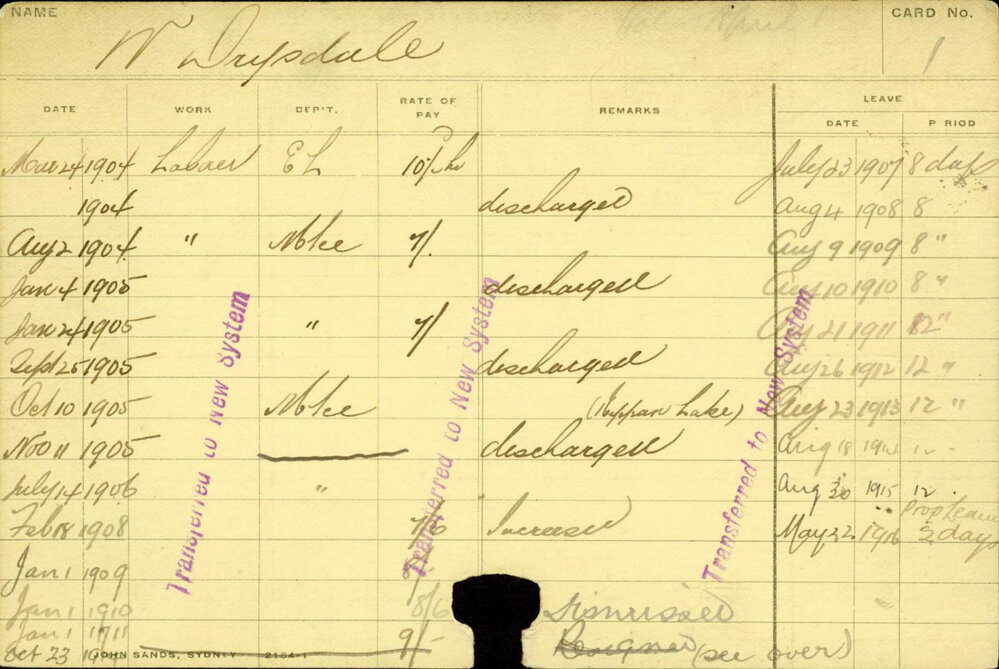 NAME
CARD No.
W Drysdale
1
DATE WORK DEP'T. RATE OF PAY REMARKS LEAVE
DATE PERIOD
Mar 24 1904 Labour E L July 23 1907 8 days
1904 discharged Aug 4 1908 8
Aug 2 1904 " Mtce 7/. Aug 9 1909 8 "
Jan 4 1905 discharged Aug 10 1910 8 "
Jan 24 1905 " 7/ Aug 21 1911 12 "
Sept 25 1905 discharged Aug 26 1912 12 "
Oct 10 1905 Mtce Lake) Aug 23 1913 12 "
Nov 11 1905 discharged Aug 18
July 14 1906 " Aug 30 1915 12 .
Feb 18 1908 7/6 Increase May 22 1916 2 days
Jan 1 1909 8/-
Jan 1 1910 8/6 Dismissed
Jan 1 1911 9/- Resigned (see over)
Oct 23
JOHN SANDS, SYDNEY 2154-1
Transferred to New System
Transferred to New System
Transferred to New System